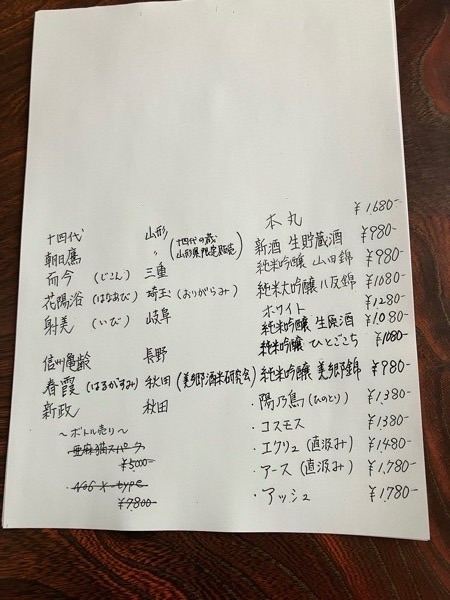 十四代 山形 本丸 ¥1680-
朝日鷹 〃 (十四代の蔵 山形県限定販売) 新酒 生貯蔵酒 ¥980-
而今 (じこん) 三重 純米吟醸 山田錦 ¥980-
花陽浴 (はなあび) 埼玉 (おりがらみ) 純米大吟醸 八反錦 ¥1080-
射美 (いび) 岐阜 ホワイト ¥1280-
純米吟醸 生原酒 ¥1080-
信州亀齢 長野 純米吟醸 ひとごこち ¥1080-
春霞 (はるがすみ) 秋田 (美郷酒米研究会) 純米吟醸 美郷錦 ¥980-
新政 秋田 陽乃鳥 (ひのとり) ¥1380-
・コスモス ¥1380-
・エクリュ (直汲み) ¥1480-
・アース (直汲み) ¥1780-
・アッシュ ¥1780-
〜ボトル売り〜
・亜麻猫スパーク
¥5000-
・No6 X-type
¥7800-